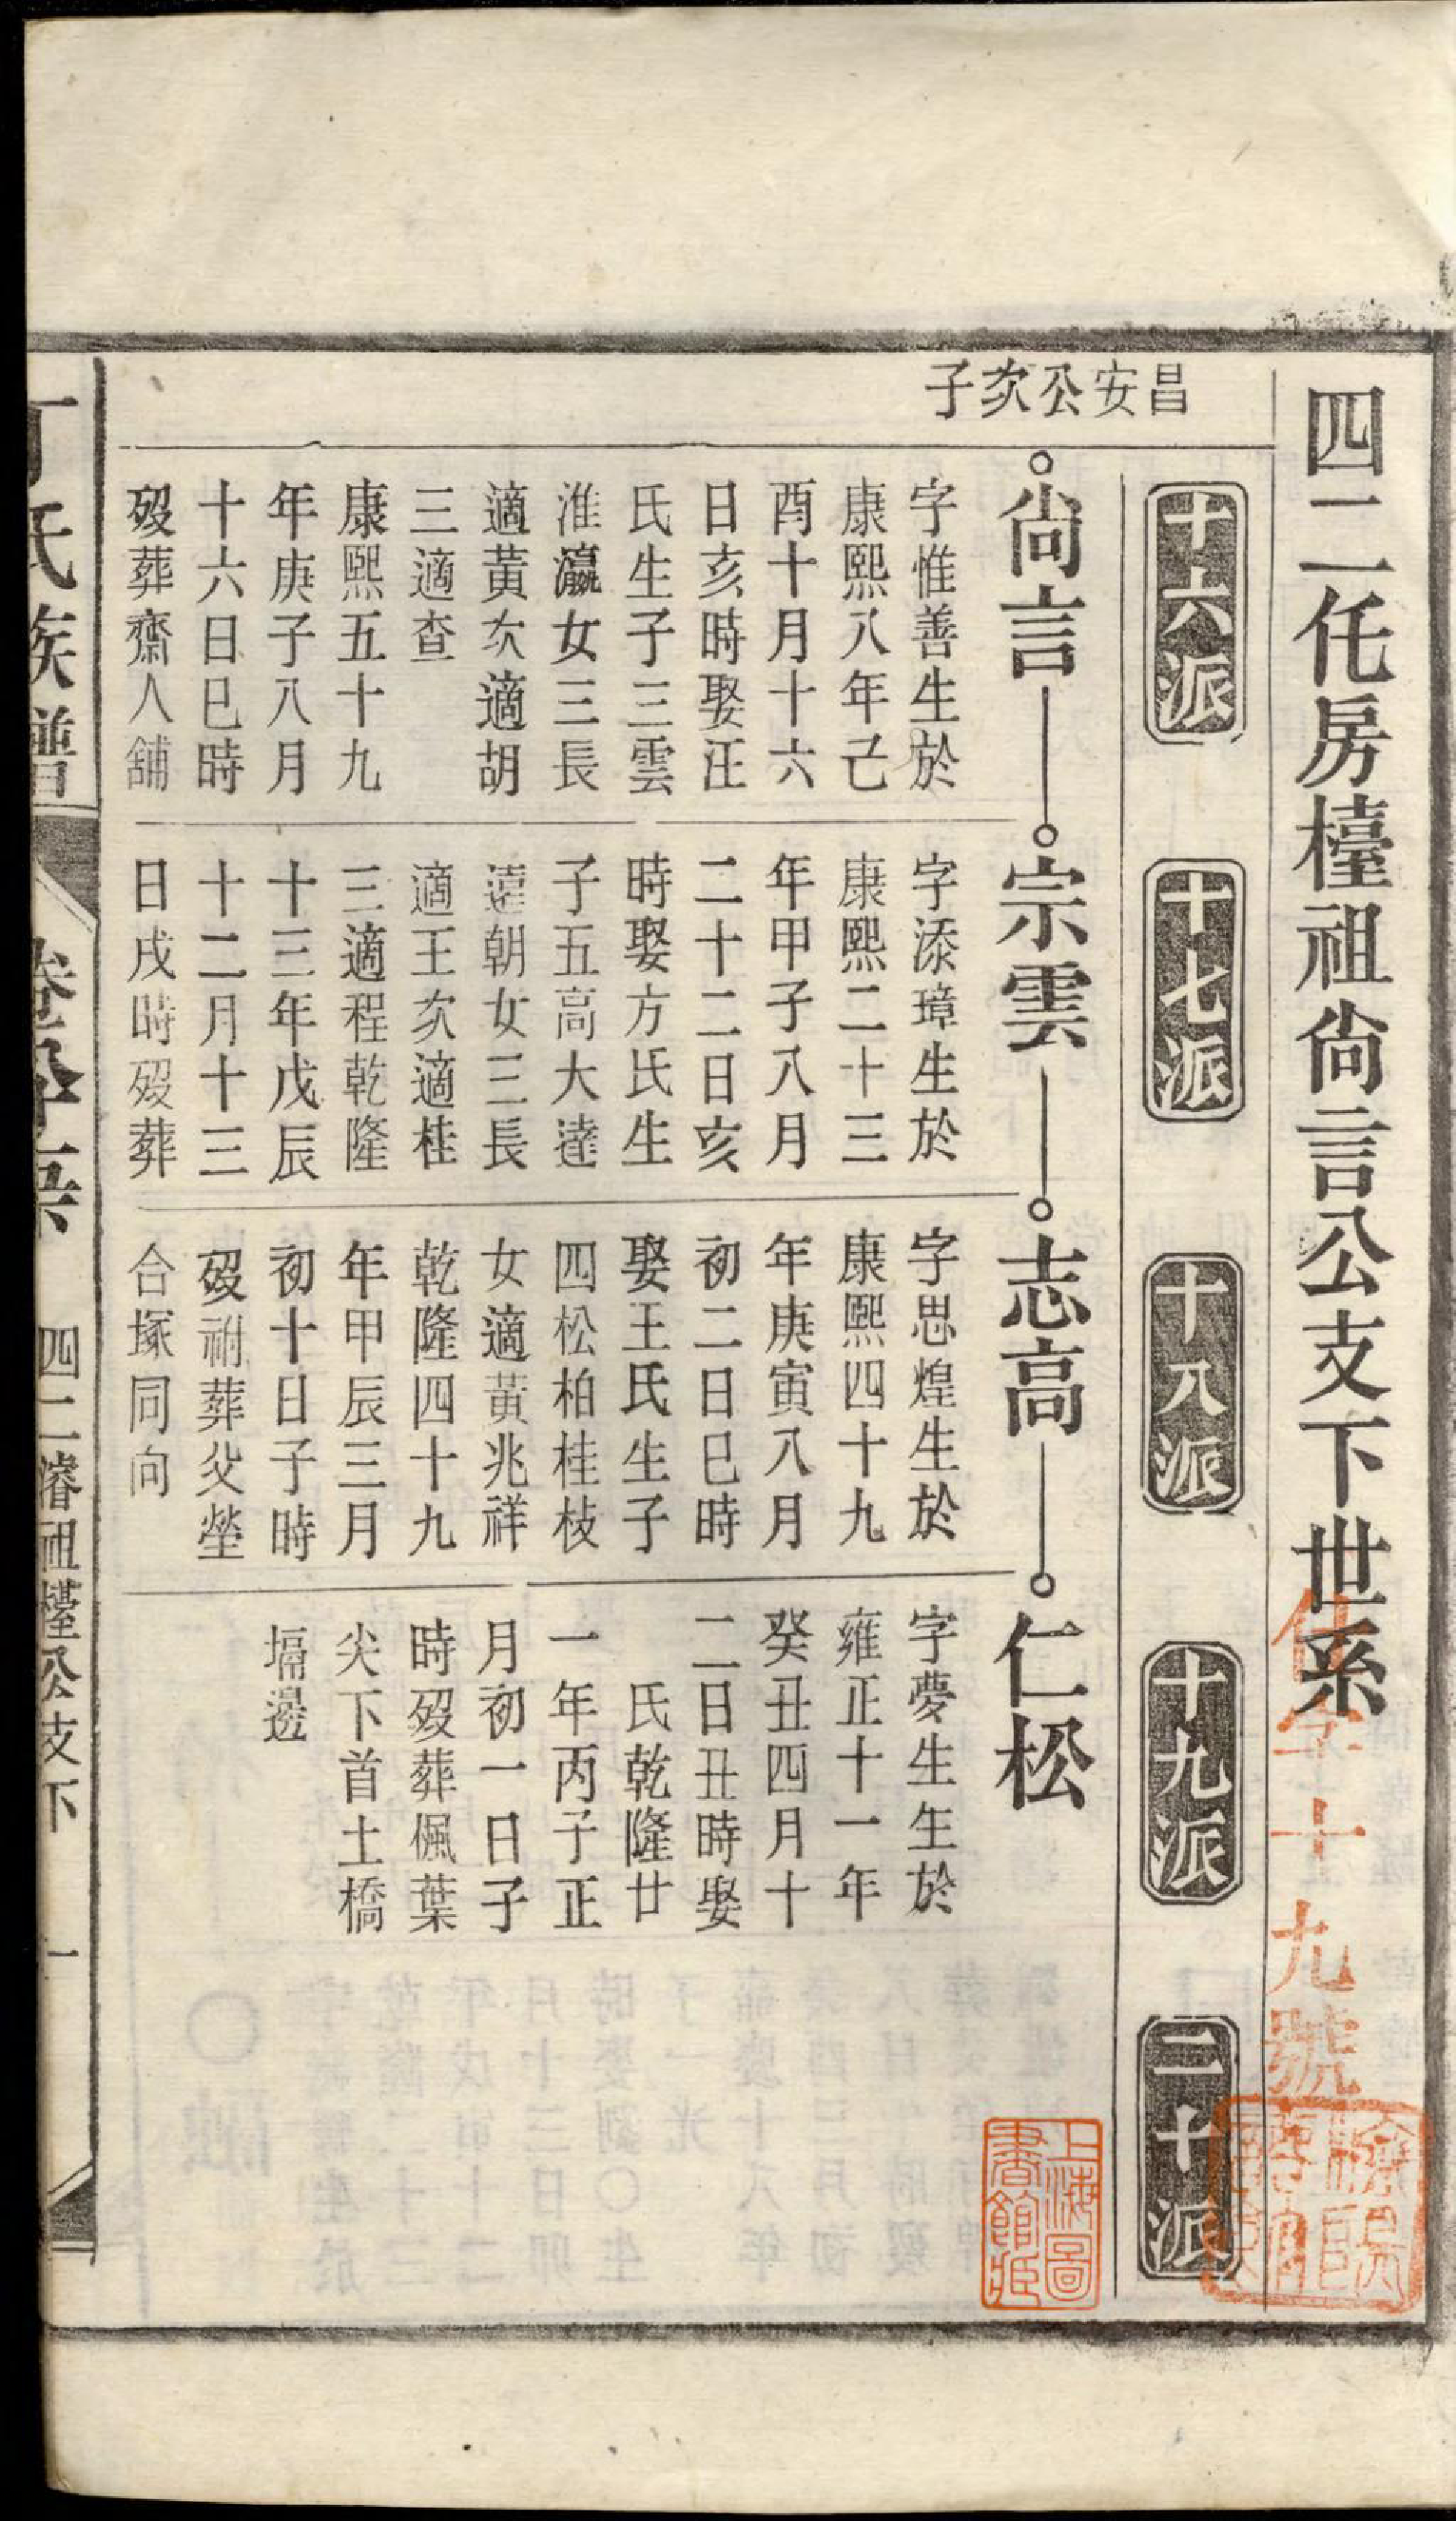 四二仛房檯祖尙言公支下世系
十六派
十七派
十八派
十九派
二十派
昌安公次子
尙言
字惟善生於
康熙八年己
酉十月十六
日亥時娶汪
氏生子三雲
淮瀛女三長
適黃次適胡
三適查
康熙五十九
年庚子八月
十六日巳時
歿葬齋人舖
宗雲
字添璋生於
康熙二十三
年甲子八月
二十二日亥
時娶方氏生
子五高大達
遠朝女三長
適王次適桂
三適程乾隆
十三年戊辰
十二月十三
日戌時歿葬
志高
字思煌生於
康熙四十九
年庚寅八月
初二日巳時
娶王氏生子
四松柏桂枝
女適黃兆祥
乾隆四十九
年甲辰三月
初十日子時
歿祔葬父塋
合塚同向
仁松
字夢生生於
雍正十一年
癸丑四月十
二日丑時娶
氏乾隆廿
一年丙子正
月初一日子
時歿葬佩葉
尖下首土橋
塥邊
丁氏族譜
四二濬祖檯公支下
一
字十九號
上海圖書館藏